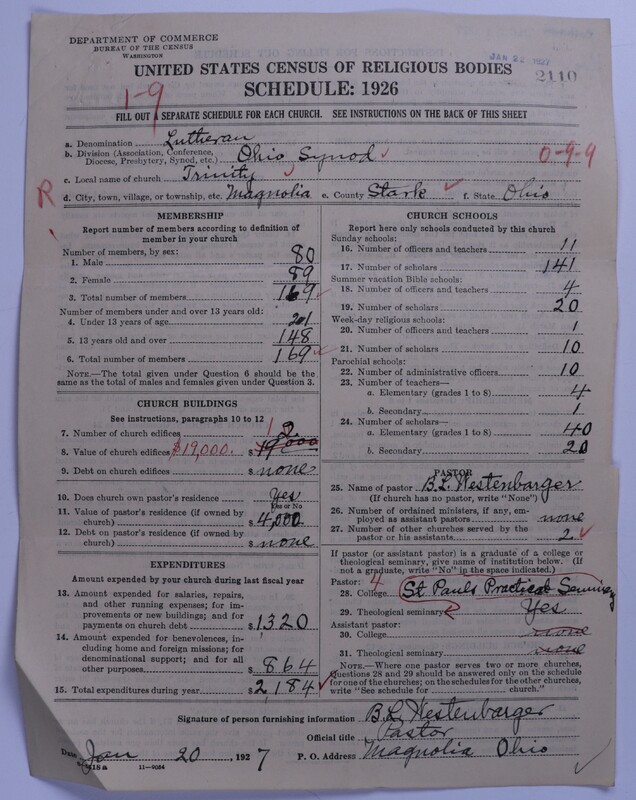 DEPARTMENT OF COMMERCE
BUREAU OF THE CENSUS
WASHINGTON
JAN 22 1927
2110
UNITED STATES CENSUS OF RELIGIOUS BODIES
SCHEDULE: 1926
1-9
FILL OUT A SEPARATE SCHEDULE FOR EACH CHURCH. SEE INSTRUCTIONS ON THE BACK OF THIS SHEET
a. Denomination Lutheran
b. Division (Association, Conference, Diocese, Presbytery, Synod, etc.) Ohio Synod
0-9-9
c. Local name of church Trinity
R
d. City, town, village, or township, etc. Magnolia e. County Stark f. State Ohio
MEMBERSHIP
Report number of members according to definition of member in your church
Number of members, by sex:
1. Male 80
2. Female 89
3. Total number of members 169
Number of members under and over 13 years old:
4. Under 13 years of age 21
5. 13 years old and over 148
6. Total number of members 169
NOTE.—The total given under Question 6 should be the same as the total of males and females given under Question 3.
CHURCH BUILDINGS
See instructions, paragraphs 10 to 12
7. Number of church edifices 1
8. Value of church edifices $19,000. $ 19,000
9. Debt on church edifices $ none
10. Does church own pastor's residence Yes
Yes or No
11. Value of pastor's residence (if owned by church) $ 4,000
12. Debt on pastor's residence (if owned by church) $ none
EXPENDITURES
Amount expended by your church during last fiscal year
13. Amount expended for salaries, repairs, and other running expenses; for improvements or new buildings; and for payments on church debt $ 1320
14. Amount expended for benevolences, including home and foreign missions; for denominational support; and for all other purposes $ 864
15. Total expenditures during year $ 2,184
CHURCH SCHOOLS
Report here only schools conducted by this church
Sunday schools:
16. Number of officers and teachers 11
17. Number of scholars 141
Summer vacation Bible schools:
18. Number of officers and teachers 4
19. Number of scholars 20
Week-day religious schools:
20. Number of officers and teachers 1
21. Number of scholars 10
Parochial schools:
22. Number of administrative officers 10
23. Number of teachers—
a. Elementary (grades 1 to 8) 4
b. Secondary 1
24. Number of scholars—
a. Elementary (grades 1 to 8) 40
b. Secondary 20
PASTOR
25. Name of pastor B. L. Westenbarger
(If church has no pastor, write "None")
26. Number of ordained ministers, if any, employed as assistant pastors none
27. Number of other churches served by the pastor or his assistants 2
If pastor (or assistant pastor) is a graduate of a college or theological seminary, give name of institution below. (If not a graduate, write "No" in the space indicated.)
Pastor: 4
28. College St Pauls Practical Seminary
29. Theological seminary Yes
Assistant pastor:
30. College none
31. Theological seminary none
NOTE.—Where one pastor serves two or more churches, Questions 28 and 29 should be answered only on the schedule for one of the churches; on the schedules for the other churches, write "See schedule for church."
Signature of person furnishing information B. L. Westenbarger
Official title Pastor
Date Jan 20, 1927 P. O. Address Magnolia Ohio
11-9054